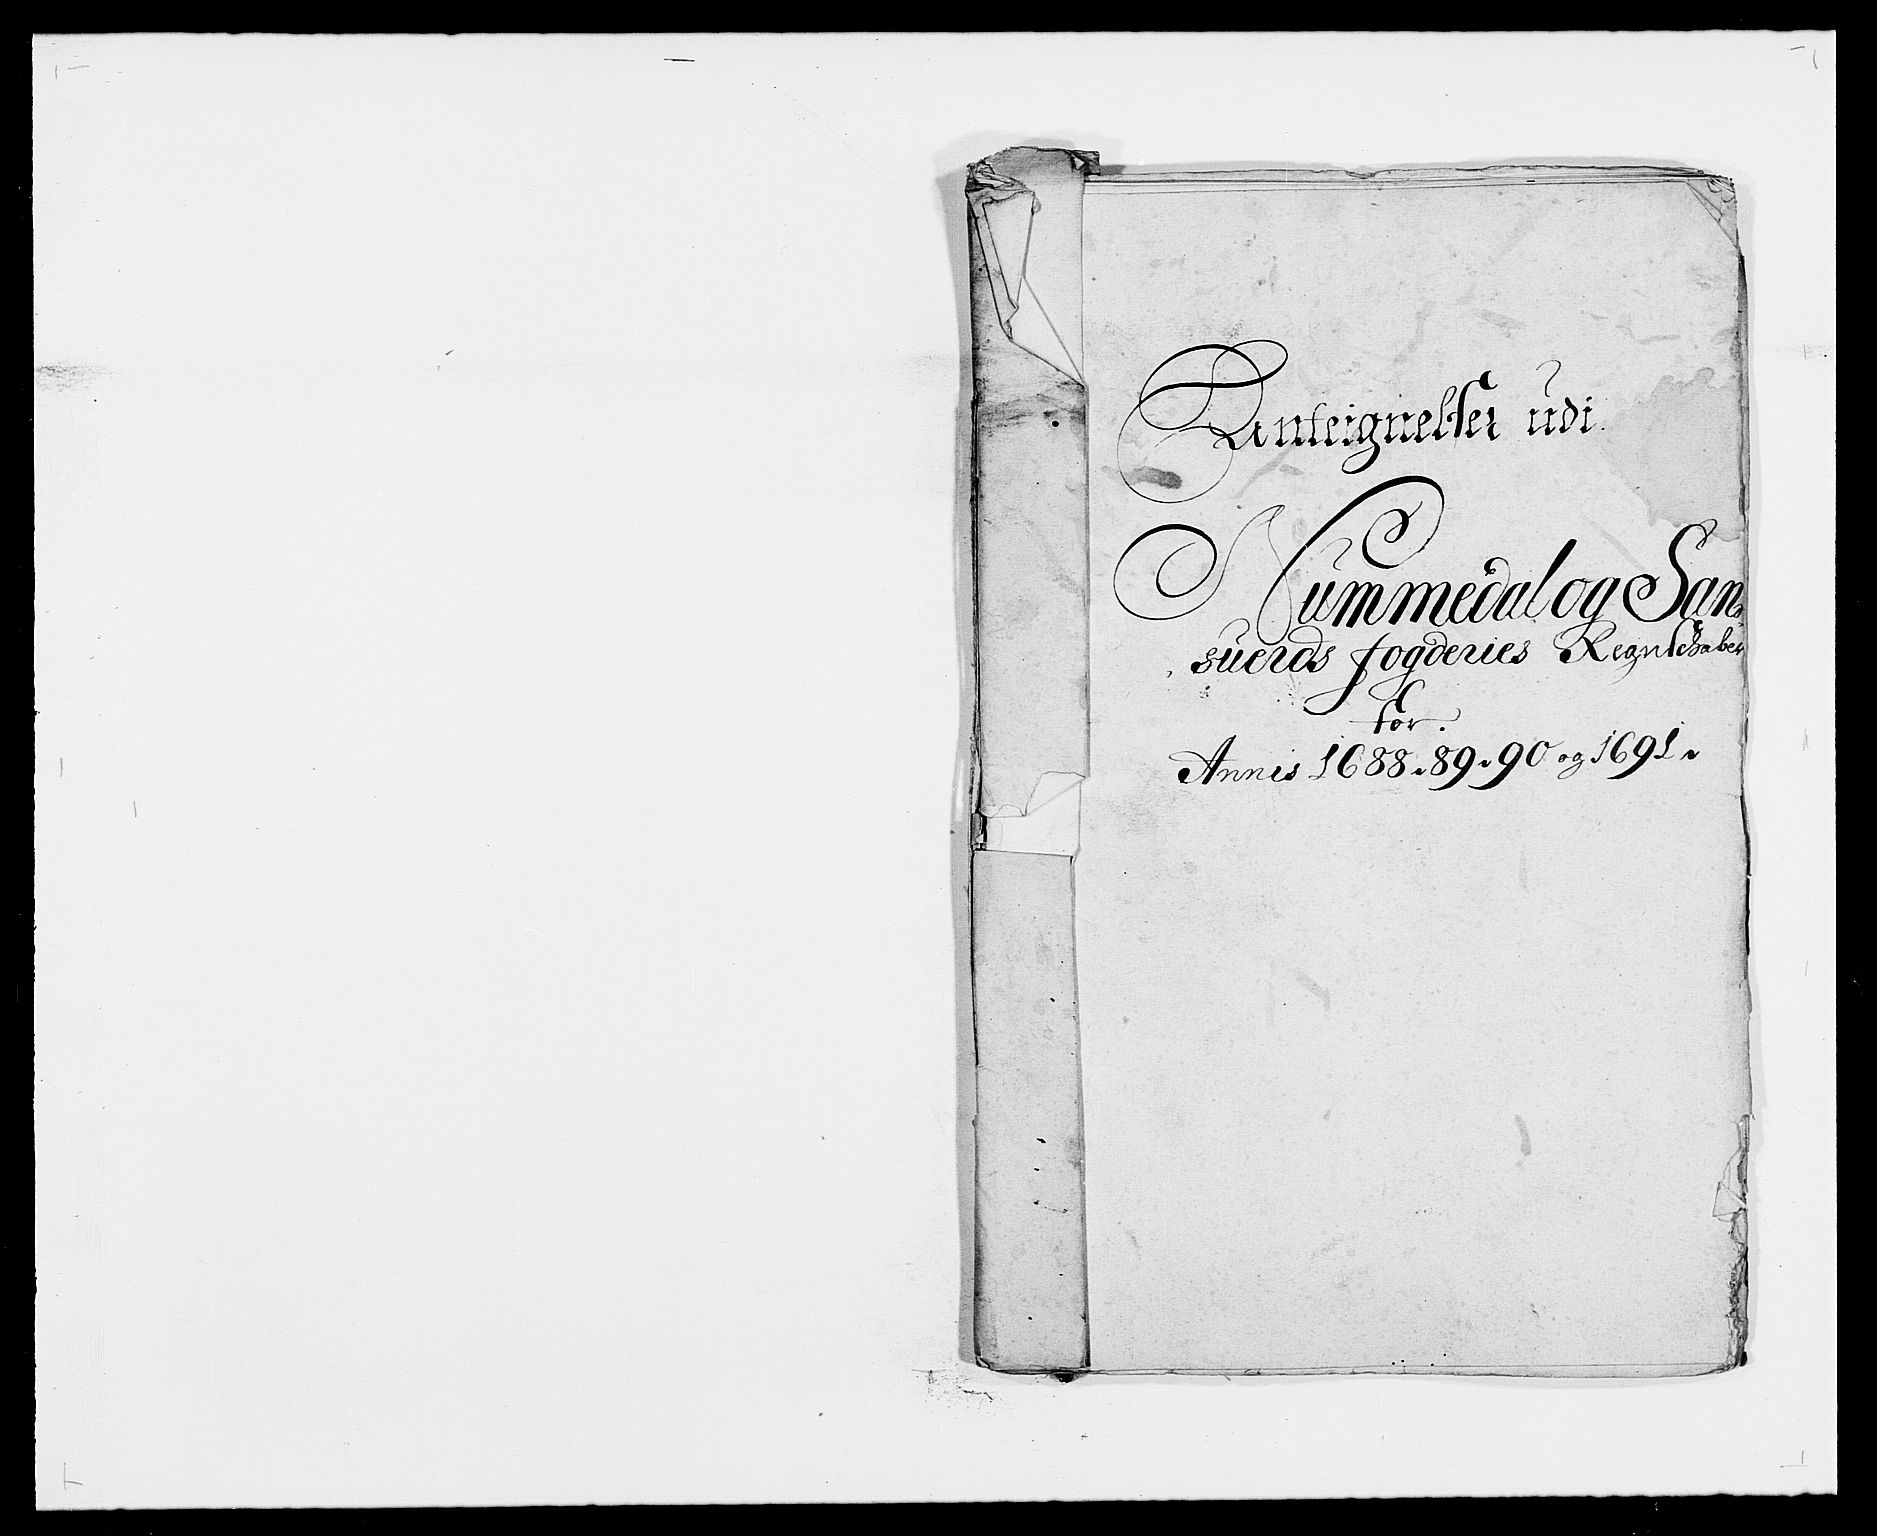 Anteignelser udi
Nummedal og San-
suerds fogderies Regnschaber
for.
Annis 1688. 89. 90 og 1691.